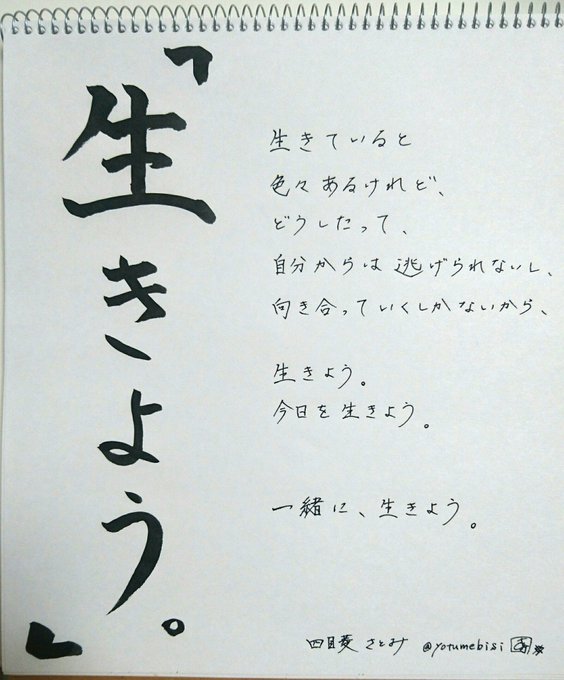 「生きよう。」
生きていると
色々あるけれど、
どうしたって、
自分からは逃げられないし、
向き合っていくしかないから、
生きよう。
今日を生きよう。
一緒に、生きよう。
四目菱 さとみ @yotumebisi